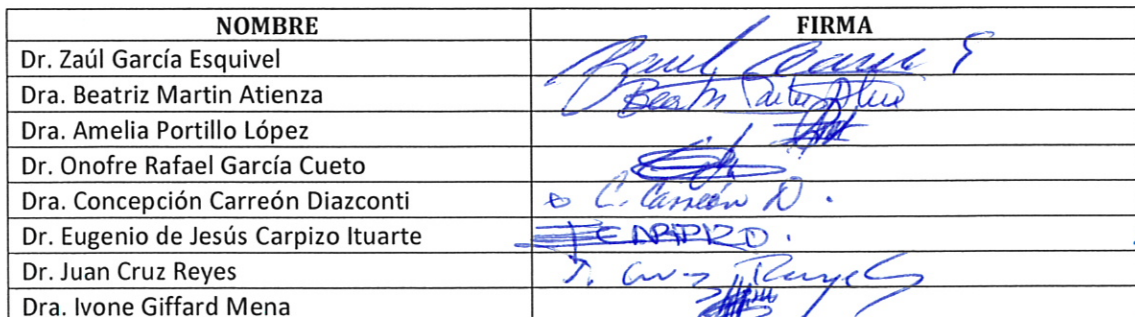 NOMBRE FIRMA
Dr. Zaúl García Esquivel
Dra. Beatriz Martin Atienza
Dra. Amelia Portillo López
Dr. Onofre Rafael García Cueto
Dra. Concepción Carreón Diazconti C. Carreón D.
Dr. Eugenio de Jesús Carpizo Ituarte
Dr. Juan Cruz Reyes J. Cruz Reyes
Dra. Ivone Giffard Mena